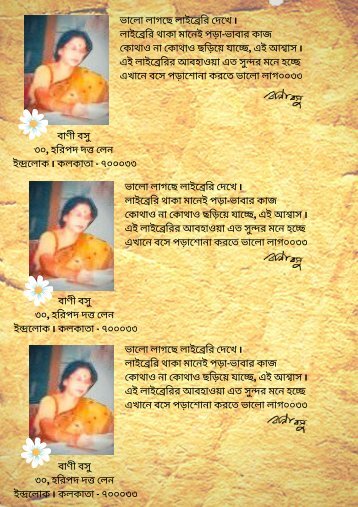 ভালো লাগছে লাইব্রেরি দেখে।
লাইব্রেরি থাকা মানেই পড়া-ভাবার কাজ
কোথাও না কোথাও ছড়িয়ে যাচ্ছে, এই আশ্বাস।
এই লাইব্রেরির আবহাওয়া এত সুন্দর মনে হচ্ছে
এখানে বসে পড়াশোনা করতে ভালো লাগ০০৩৩
বাণী বসু
বাণী বসু
৩০, হরিপদ দত্ত লেন
ইন্দ্রলোক। কলকাতা - ৭০০০৩৩
ভালো লাগছে লাইব্রেরি দেখে।
লাইব্রেরি থাকা মানেই পড়া-ভাবার কাজ
কোথাও না কোথাও ছড়িয়ে যাচ্ছে, এই আশ্বাস।
এই লাইব্রেরির আবহাওয়া এত সুন্দর মনে হচ্ছে
এখানে বসে পড়াশোনা করতে ভালো লাগ০০৩৩
বাণী বসু
বাণী বসু
৩০, হরিপদ দত্ত লেন
ইন্দ্রলোক। কলকাতা - ৭০০০৩৩
ভালো লাগছে লাইব্রেরি দেখে।
লাইব্রেরি থাকা মানেই পড়া-ভাবার কাজ
কোথাও না কোথাও ছড়িয়ে যাচ্ছে, এই আশ্বাস।
এই লাইব্রেরির আবহাওয়া এত সুন্দর মনে হচ্ছে
এখানে বসে পড়াশোনা করতে ভালো লাগ০০৩৩
বাণী বসু
বাণী বসু
৩০, হরিপদ দত্ত লেন
ইন্দ্রলোক। কলকাতা - ৭০০০৩৩